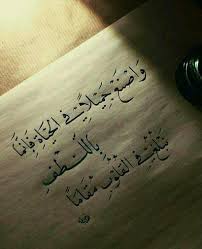 وَاصْنَعْ جَمِيلًا فِي الحَيَاةِ فَإِنَّمَا
بِاللُّطْفِ
نَبْلُغُ فِي القُلُوبِ مَقَامًا